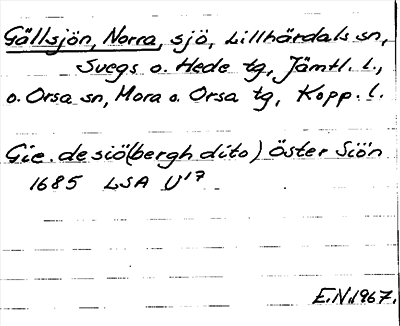 Gällsjön, Norra, sjö, Lillhärdals sn,
Svegs o. Hede tg, Jämtl. l.,
o. Orsa sn, Mora o. Orsa tg, Kopp. l.
Gie. de siö (bergh dito) Öster Siö'n
1685 LSA U'7
E.N. 1967.